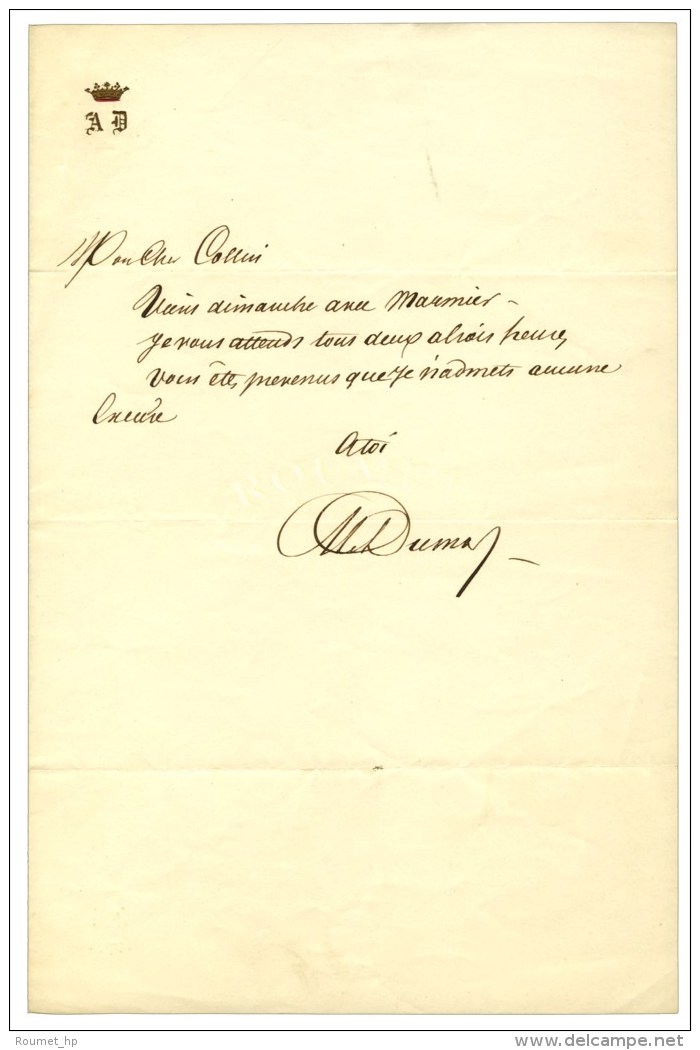 A D
Mon Cher Collin
Viens dimanche avec Marmier –
Je vous attends tous deux a trois heures,
Vous êtes prevenus que Je n'admets aucune
Excuse
A toi
Alex Dumas
Roumet_hp
www.delcampe.net